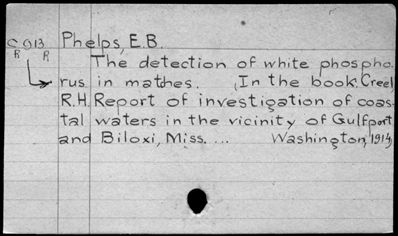 C 913 Phelps, E.B.
R R The detection of white phospho-
rus in matches. (In the book: Creel
R.H. Report of investigation of coas-
tal waters in the vicinity of Gulfport
and Biloxi, Miss. ... Washington, 1914)